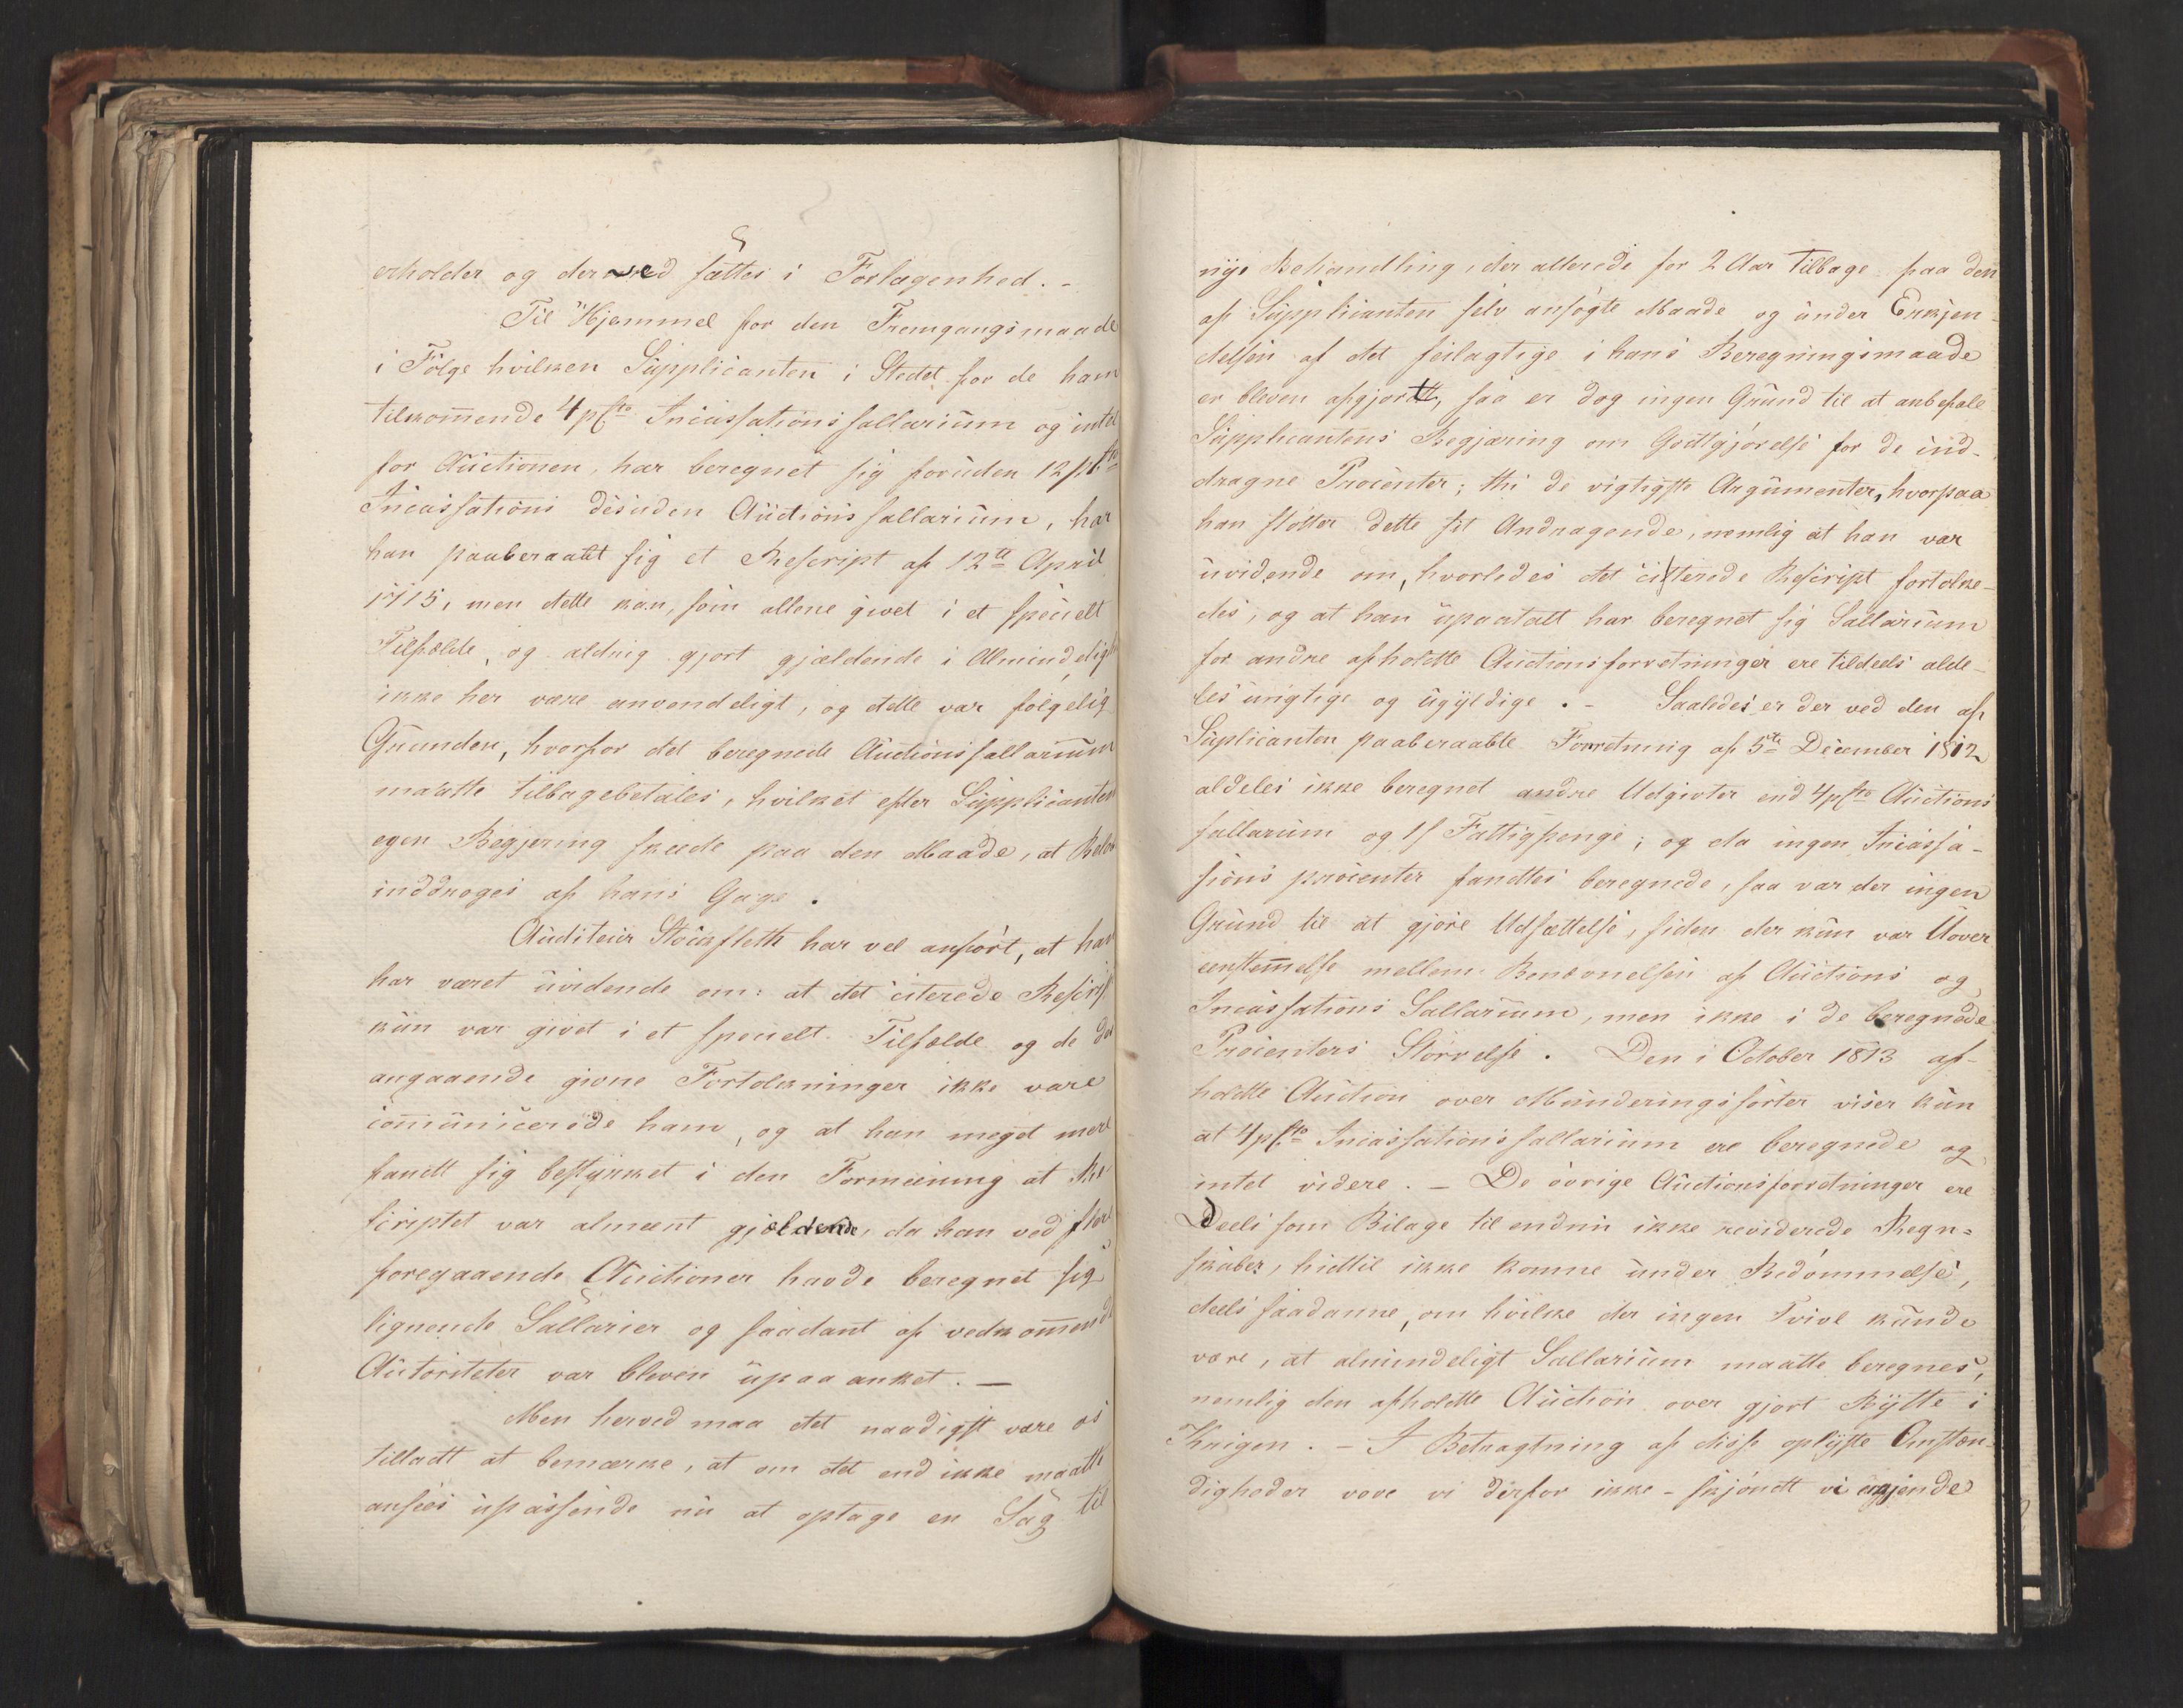 erholder og derved sættes i Forlagenhed. -
Til Hjemmel for den Fremgangsmaade
i Følge hvilken Supplicanten i Stedet for de ham
tilkom̄ende 4 pCto Incassations sallarium og intet
for Auctionen, har beregnet sig foruden 12 pCto
Incassations desuden Auctions sallarium, har
han paaberaabt sig et Rescript af 12te April
1715, men dette kan, som allene givet i et specielt
Tilfælde, og aldrig gjort gjældende i Almindeligh
ikke her være anvendeligt, og dette var følgelig
Grunden, hvorfor det beregnede Auctionssallarium
maatte tilbagebetales, hvilket efter Supplicanten
egen Begjering skeede paa den Maade, at Belob
inddroges af hans Gage.
Auditeur Stockfleth har vel anført, at han
har været uvidende om: at det citerede Rescript
kun var givet i et specielt Tilfælde og de der
angaaende givne Fortolkninger ikke vare
com̄unicerede ham, og at han meget mere
fandt sig bestyrket i den Formeening at Re-
scriptet var almeent gjældende, da han ved flere
foregaaende Auctioner havde beregnet sig
lignende Sallarier og saadant af vedkom̄ende
Autoriteter var bleven upaaanket. -
Men herved maa det naadigst være os
tilladt at bemærke, at om det end ikke maatte
ansees upassende nu at optage en Sag til
nye Behandling, der allerede for 2 Aar tilbage paa den
af Supplicanten selv ansøgte Maade og under Erkjen-
delsen af det feilagtige i hans Beregningsmaade
er bleven afgjordt, saa er dog ingen Grund til at anbefale
Supplicantens Begjæring om Godtgjørelse for de ind-
dragne Procenter; thi de vigtigste Argumenter, hvorpaa
han støtter dette sit Andragende, nemlig at han var
uvidende om, hvorledes det citerede Rescript fortolke-
des, og at han upaatalt har beregnet sig Sallarium
for andre afholdte Auctionsforretninger ere tildeels alde-
les urigtige og ugyldige. - Saaledes er der ved den af
Suplicanten paaberaabte Forretning af 5te December 1812
aldeles ikke beregnet andre Udgivter end 4 pCto Auctions
sallarium og 1 s Fattigpenge; og da ingen Incassa-
sions procenter fandtes beregnede, saa var der ingen
Grund til at gjøre Udsættelse, siden der kun var Uover
eenstem̄else mellem Benævnelsen af Auctions og
Incassations Sallarium, men ikke i de beregnede
Procenters Størrelse. Den i October 1813 af-
holdte Auction over Munderingssorter viser kun
at 4 pCto Incassationssallarium ere beregnede og
intet videre. - De øvrige Auctionsforretninger ere
Deels som Bilage til endnu ikke reviderede Regn=
skaber, hidtil ikke komne under Bedømmelse,
deels saadanne, om hvilke der ingen Tvivl kunde
være, at almindeligt Sallarium maatte beregnes,
nemlig den afholdte Auction over gjort Bytte i
Krigen. - I Betragtning af disse oplyste Omstæn-
digheder vove vi derfor ikke - skjøndt vi erkjende